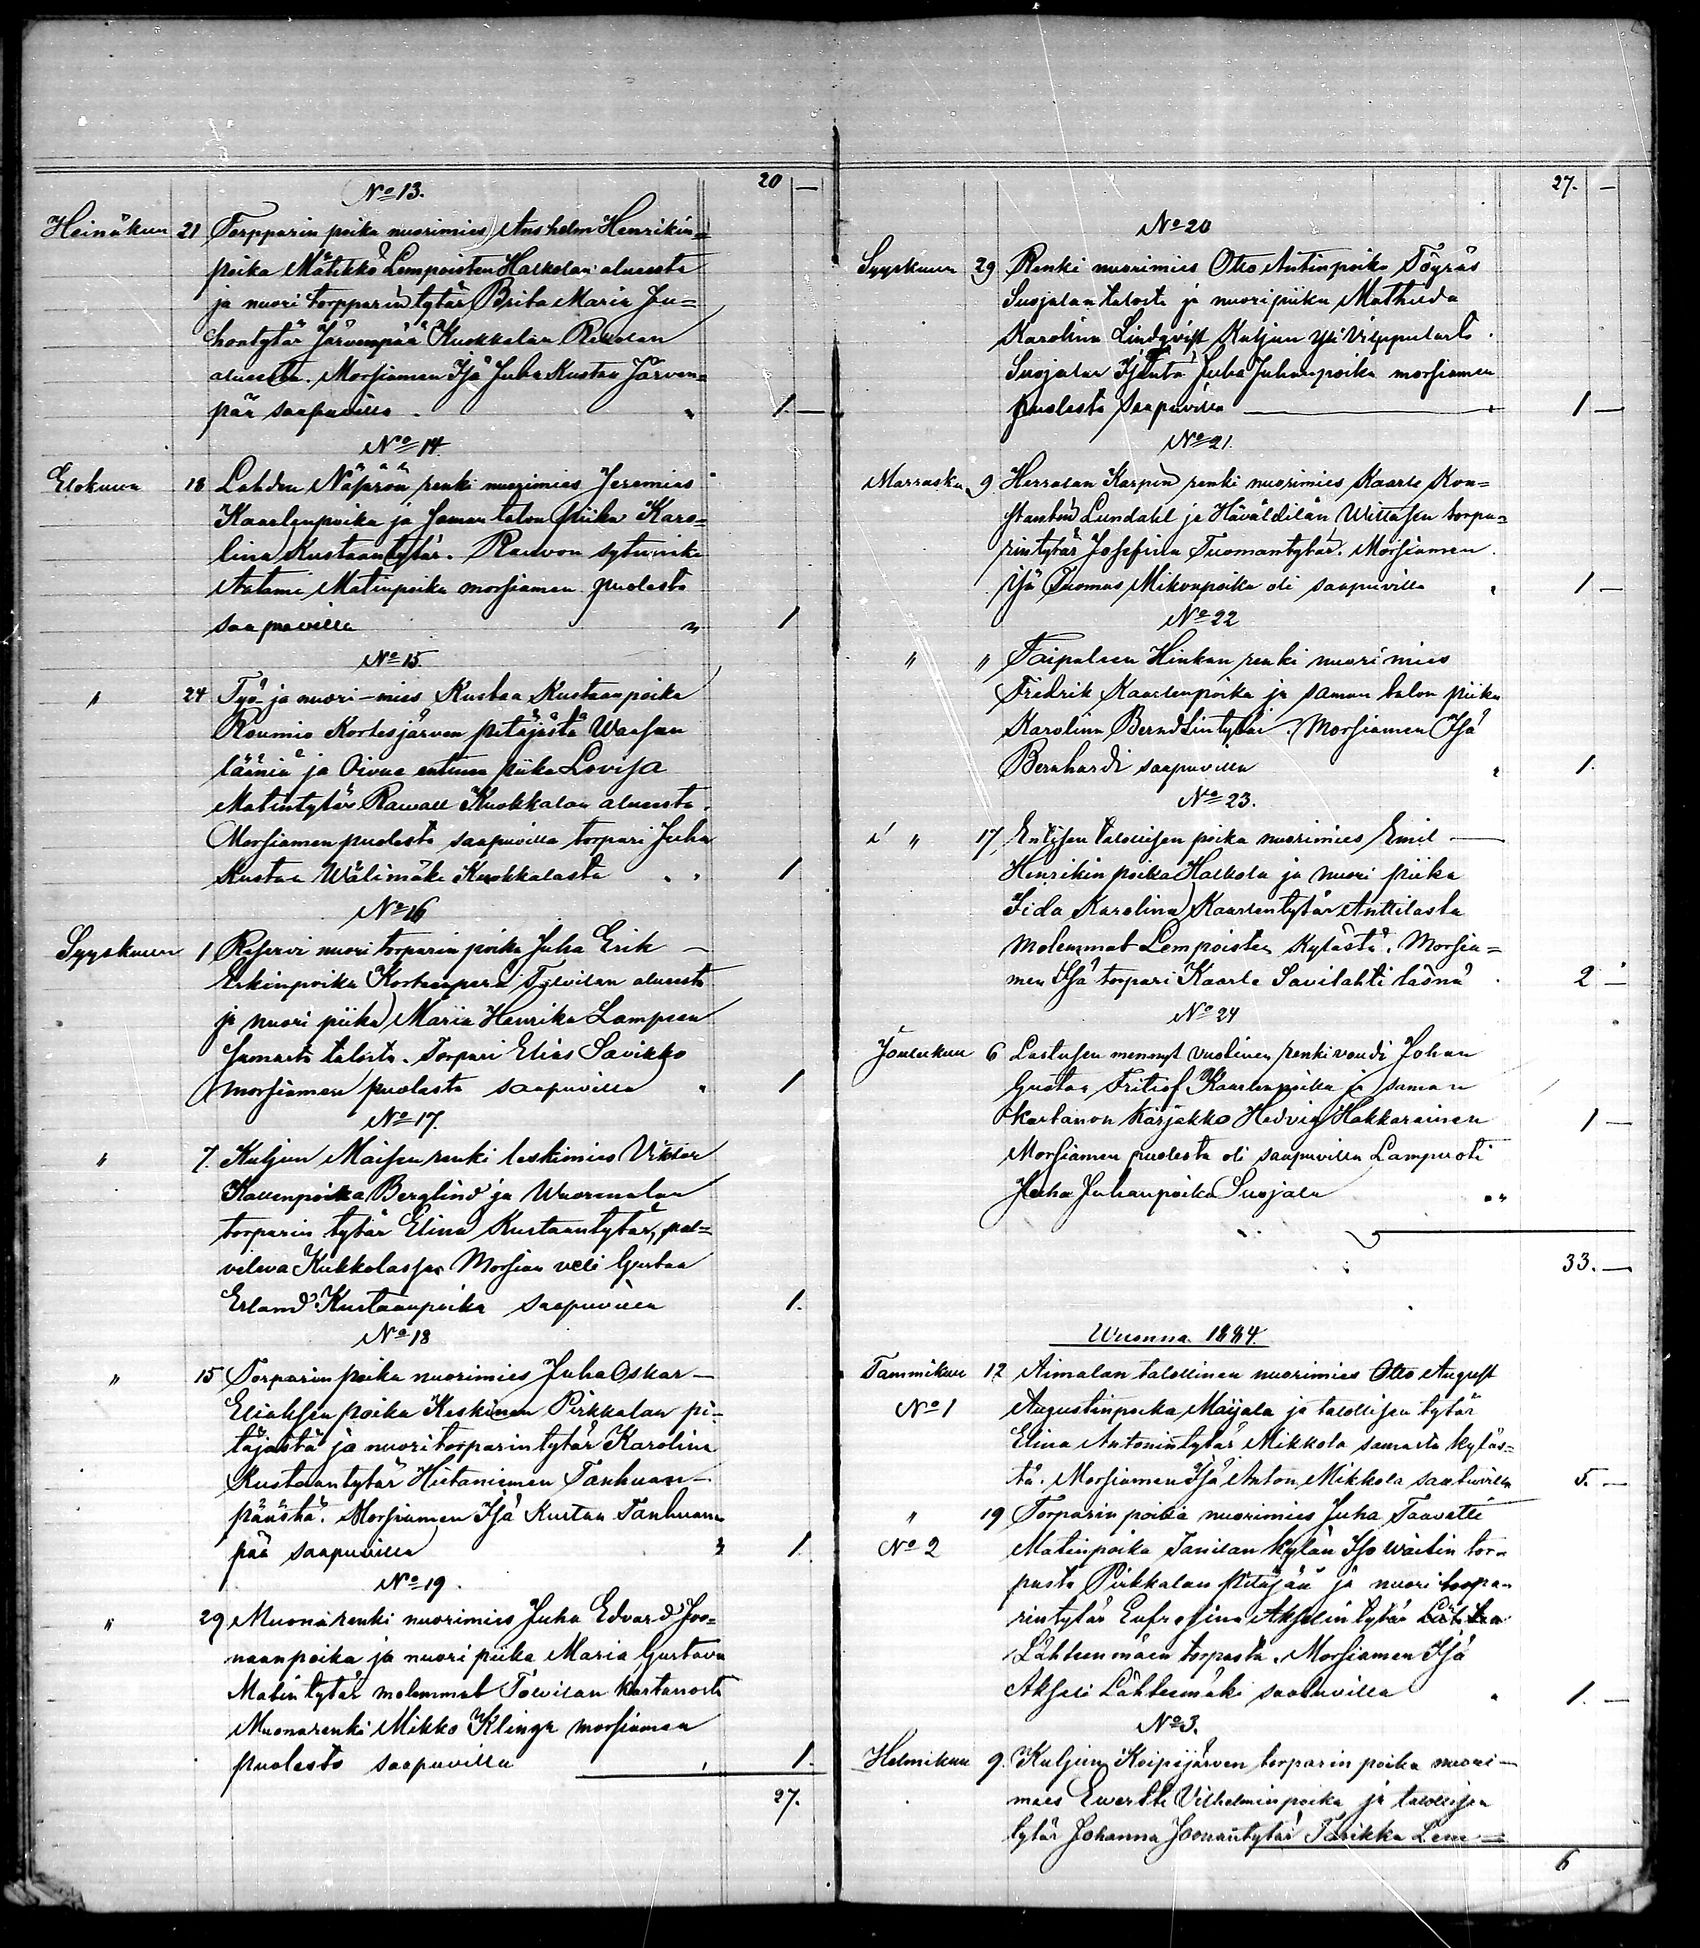 20 —
No 13.
Heinäkuu 21 Torpparin poika nuorimies Anshelm Henrikin=
poika Mätikkö Lempoisten Halkolan alueesta
ja nuori torpparin tytär Brita Maria Ju=
hontytär Järvenpää Kuokkalan Rekolan
alueelta. Morsiamen Isä Juha Kustaa Järven=
pää saapuvilla „ 1 —
No 14.
Elokuun 18 Lahden Näpärön renki nuorimies Jeremias
Kaarlenpoika ja saman talon piika Karo=
lina Kustaantytär. Rauvon
Antami Matinpoika morsiamen puolesta
saapuvilla „ 1
No 15.
„ 24 Työ- ja nuori-mies Kustaa Kustaanpoika
Roumio Kortesjärven pitäjästä Waasan
lääniä ja piika Lovisa
Matintytär Rawall Kuokkalan alueesta.
Morsiamen puolesta saapuvilla torpari Juha
Kustaa Wälimäki Kuokkalasta „ 1
No 16
Syyskuun 1 Reservi nuori torparin poika Juha Erik —
Erkinpoika Kortenperä Tolvilan alueesta
ja nuori piika Maria Henrika Lampeen
samasta talosta. Torpari Elias Savikko
morsiamen puolesta saapuvilla „ 1
No 17.
„ 7. Kuljun Moisen renki leskimies Viktor
Kallenpoika Berglind ja Wuorenalan
torparin tytär Elina Kustaantytär, pal=
veleva Kukkolassa. Morsian veli Gustaa
Erland Kustaanpoika saapuvilla 1.
No 18
„ 15 Torparin poika nuorimies Juha Oskar —
Eliaksen poika Keskinen Pirkkalan pi-
täjästä ja nuori torparin tytär Karolina
Kustaantytär Hiitaniemen Tanhuan-
päästä. Morsiamen Isä Kustaa Tanhuan
pää saapuvilla „ 1.
No 19.
„ 29 Muonarenki nuorimies Juha Edvard Joo=
naanpoika ja nuori piika Maria Gustava
Matintytär molemmat Tolvilan kartanosta
Muonarenki Mikko Klinga morsiamen
puolesta saapuvilla „ 1.
27.
27. —
No 20
Syyskuun 29 Renki nuorimies Otto Antinpoika Töyräs
Suojalan talosta ja nuori piika Mathilda
Karolina Lindqvist Kuljun Yli Vilppulasta.
Suojalan Isäntä Juha Juhanpoika morsiamen
puolesta saapuvilla — „ 1 —
No 21.
Marrasku. 9 Herralan Karpin renki nuorimies Kaarle Kon=
stantin Lundahl ja Häväldilän Wittasen torpa=
rintytär Josefina Tuomantytär. Morsiamen
isä Tuomas Mikonpoika oli saapuvilla „ 1 —
No 22
„ „ Taipaleen Hinkan renki nuori mies
Fredrik Kaarlenpoika ja saman talon piika
Karolina Berndtintytär. Morsiamen Isä
Bernhardi saapuvilla „ 1.
No 23.
„ 17, Entisen talollisen poika nuorimies Emil —
Henrikin poika Halkola ja nuori piika
Iida Karolina Kaarlentytär Anttilasta
molemmat Lempoisten kylästä. Morsia=
men Isä torpari Kaarle Savilahti läsnä 2 —
No 24
Joulukuu 6 Laukusen mennyt vuolinen renkivouti Johan
Gustav Fritiof Kaarlenpoika ja saman
kartanon karjakko Hedvig Hakkarainen 1 —
Morsiamen puolesta oli saapuvilla Lampuoti
Juha Juhanpoika Suojala „
33. —
Wuonna 1884.
Tammikuu 12 Aimalan talollinen nuorimies Otto August
No 1 Augustinpoika Maijala ja talollisen tytär
Elina Antonintytär Mikkola samasta kyläs=
tä. Morsiamen Isä Anton Mikkola saapuvilla 5. —
„ 19 Torparin poika nuorimies Juha Taavetti
No 2 Matinpoika Tanilan kylän Iso Waitin tor-
pasta Pirkkalan pitäjää ja nuori torpa-
rintytär Eufrosina Akselintytär
Lähteenmäen torpasta. Morsiamen Isä
Akseli Lähteenmäki saapuvilla „ 1. —
No 3.
Helmikuu 9. Kuljun Koipijärven torparin poika nuori-
mies Ewertti Vilhelminpoika ja talollisen
tytär Johanna Joonaantytär Tarikka Lem=
6